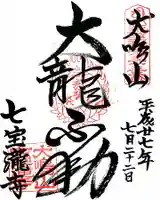 犬鳴山
平成廿七年
七月二十二日
大龍不動
七宝瀧寺